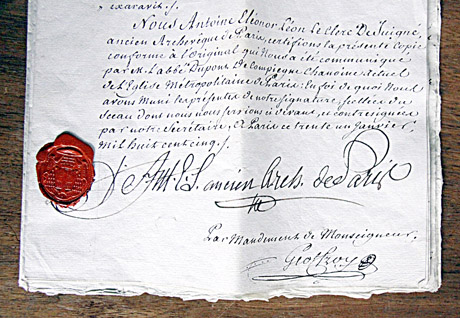 exaravit ./.
Nous Antoine Eléonor Léon Le Clerc De Juigné,
ancien Archevêque de Paris, certifions la présente Copie
conforme à l'Original qui Nous a été communiqué
par M. l'abbé Dupont De Compiegne Chanoine actuel
de l'Eglise Métropolitaine de Paris: En foi de quoi Nous
avons muni les présentes de notre signature, scellées du
Sceau dont nous nous servions ci devant, et contresignées
par notre Sécrétaire, à Paris ce trente un janvier,
mil huit cent cinq ./.
† Ant. E. L. ancien Arch. de Paris
Par Mandement de Monseigneur.
Geoffroy